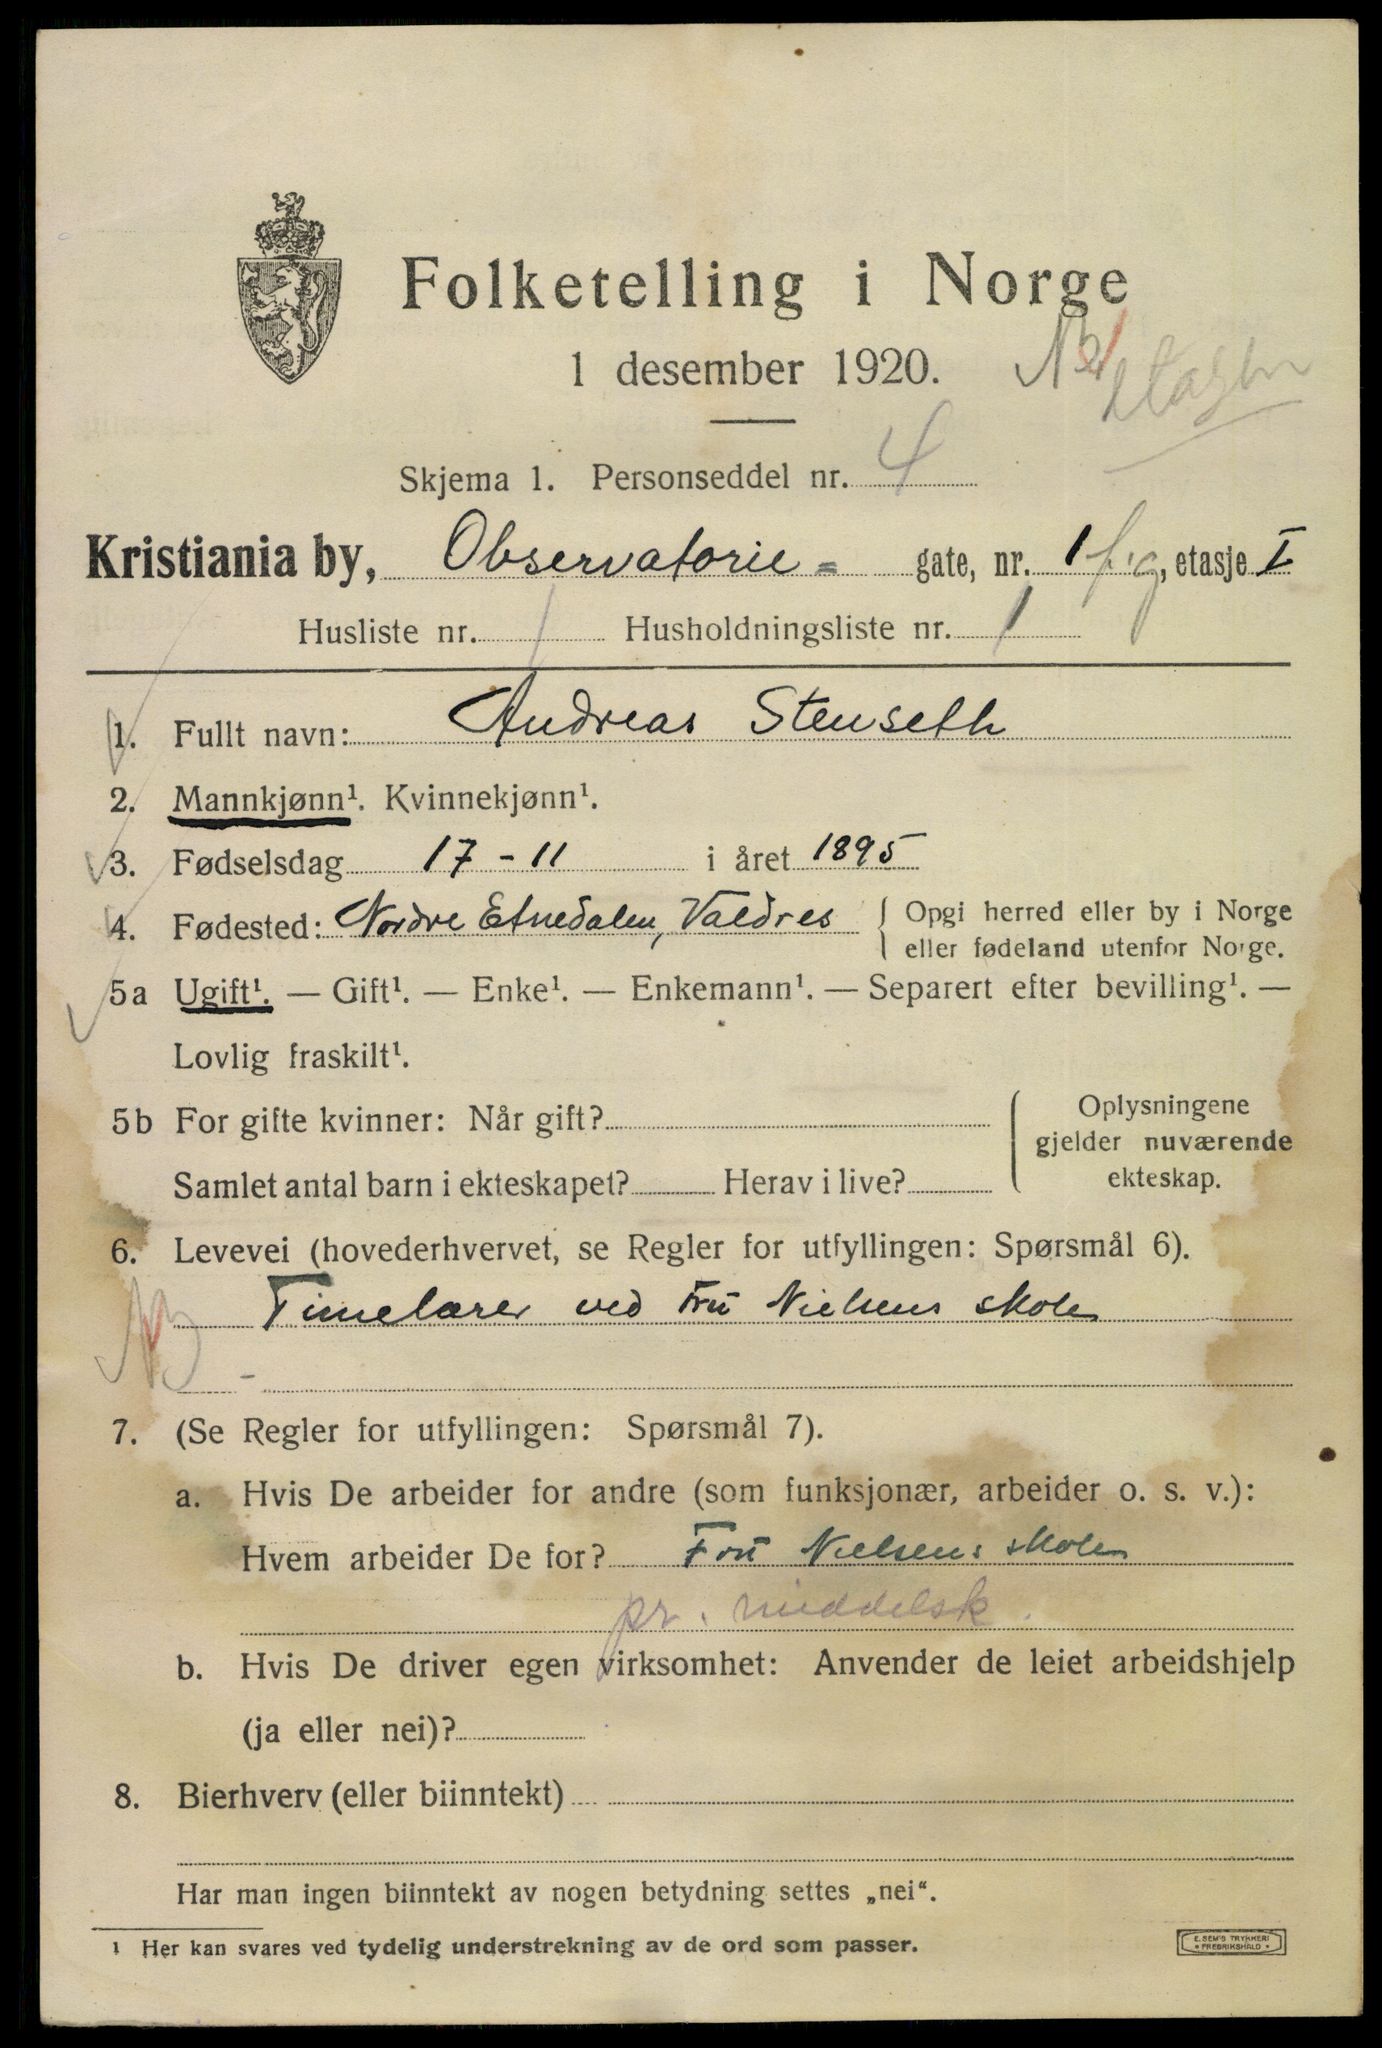 Folketelling i Norge
1 desember 1920.
Skjema 1. Personseddel nr. 4
Kristiania by, Observatorie- gate, nr. 1 f.g, etasje I
Husliste nr. 1 Husholdningsliste nr. 1
1. Fullt navn: Andreas Stenseth
2. Mannkjønn¹. Kvinnekjønn¹.
3. Fødselsdag 17-11 i året 1895
4. Fødested: Nordre Etnedalen, Valdres { Opgi herred eller by i Norge
eller fødeland utenfor Norge.
5a Ugift¹. — Gift¹. — Enke¹. — Enkemann¹. — Separert efter bevilling¹. —
Lovlig fraskilt¹.
5b For gifte kvinner: Når gift?
Samlet antal barn i ekteskapet? Herav i live?
Oplysningene
gjelder nuværende
ekteskap.
6. Levevei (hovederhvervet, se Regler for utfyllingen: Spørsmål 6).
Timelærer ved Frü Nielsens skole
7. (Se Regler for utfyllingen: Spørsmål 7).
a. Hvis De arbeider for andre (som funksjonær, arbeider o. s. v.):
Hvem arbeider De for? Frü Nielsens skole
pr. middelsk.
b. Hvis De driver egen virksomhet: Anvender de leiet arbeidshjelp
(ja eller nei)?
8. Bierhverv (eller biinntekt)
Har man ingen biinntekt av nogen betydning settes „nei“.
1 Her kan svares ved tydelig understrekning av de ord som passer.
E. SEM'S TRYKKERI
FREDRIKSHALD